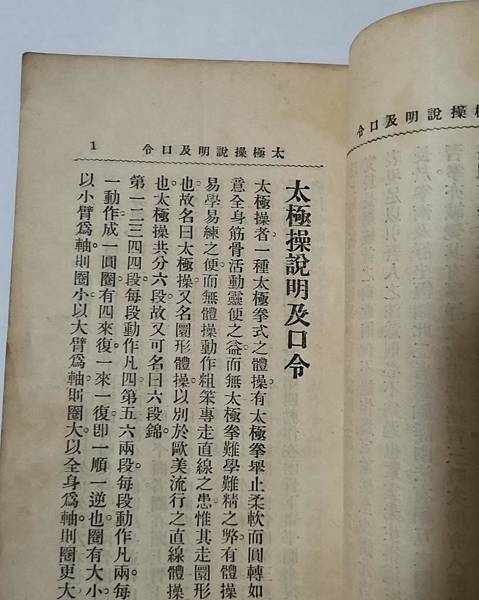 太極操說明及口令 1
太極操說明及口令
太極操者一種太極拳式之體操。有太極拳舉止柔軟而圓轉如
意全身筋骨活動靈便之益而無太極拳難學難精之弊。有體操
易學易練之便而無體操動作粗笨專走直線之患惟其走圜形
也故名曰太極操又名圜形體操以別於歐美流行之直線體操
也。太極操共分六段故又可名曰六段錦。
第一二三四四段每段動作凡四第五六兩段每段動作凡兩。每
一動作成一圜圈有四來復一來一復即一順一逆也。圈有大小。
以小臂爲軸則圈小以大臂爲軸則圈大以全身爲軸則圈更大
說明及口令